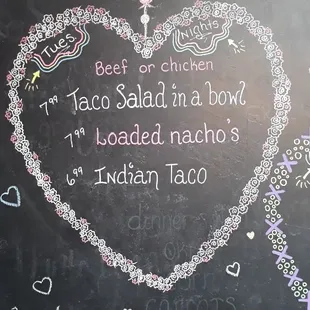 Tues Nights
Beef or chicken
7⁹⁹ Taco Salad in a bowl
7⁹⁹ Loaded nacho's
6⁹⁹ Indian Taco
dinner
CARROTS